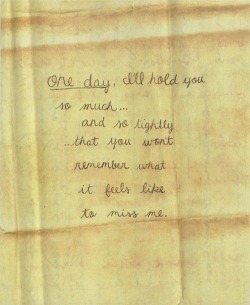 One day, I'll hold you
so much...
and so tightly
..that you won't
remember what
it feels like
to miss me.